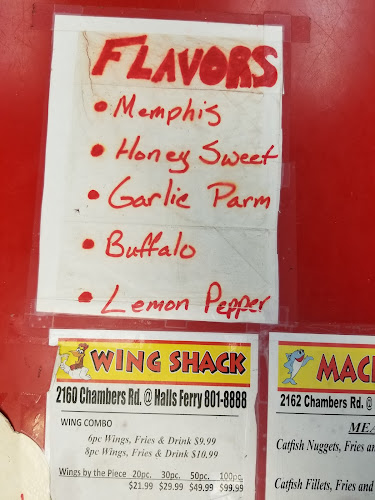 FLAVORS
• Memphis
• Honey Sweet
• Garlic Parm
• Buffalo
• Lemon Pepper
WING SHACK
2160 Chambers Rd. @ Halls Ferry 801-8888
WING COMBO
6pc Wings, Fries & Drink $9.99
8pc Wings, Fries & Drink $10.99
Wings by the Piece 20pc. 30pc. 50pc. 100pc.
$21.99 $29.99 $49.99 $99.99
MAC
2162 Chambers Rd. @
MEA
Catfish Nuggets, Fries and
Catfish Fillets, Fries and